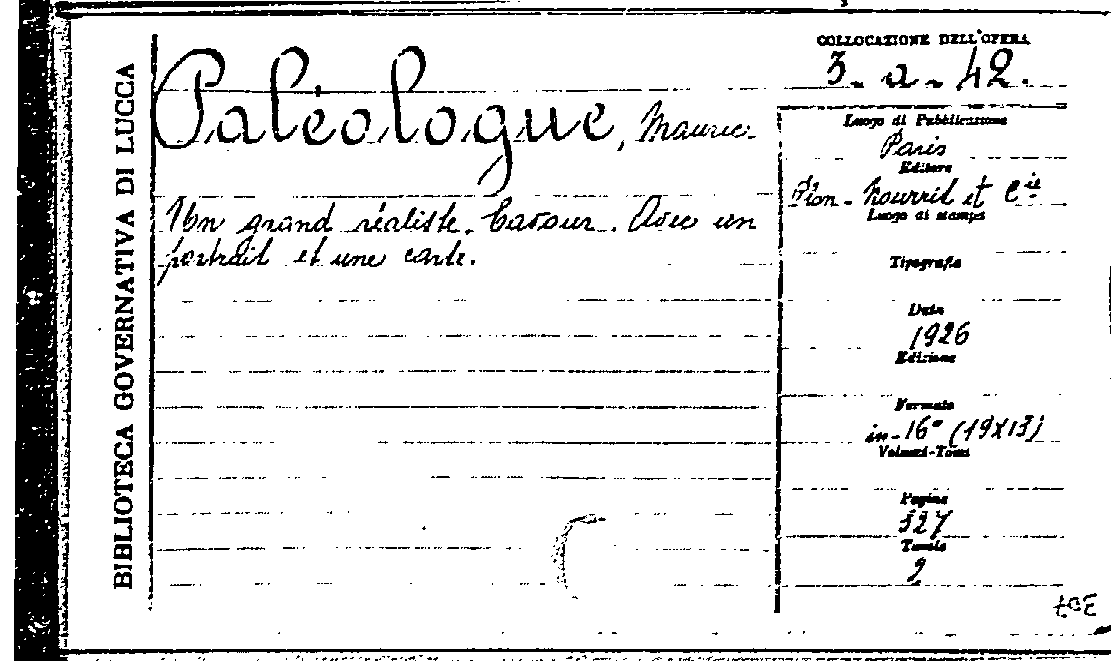 BIBLIOTECA GOVERNATIVA DI LUCCA
Paléologue, Maurice
Un grand réaliste. Cavour. Avec un
portrait et une carte.
COLLOCAZIONE DELL'OPERA
3-a-42.
Luogo di Pubblicazione
Paris
Editore
Plon-Nourrit et Cie
Luogo di stampa
Tipografia
Data
1926
Edizione
Formato
in-16° (19x13)
Volumi-Tomi
Pagine
327
Tavole
2